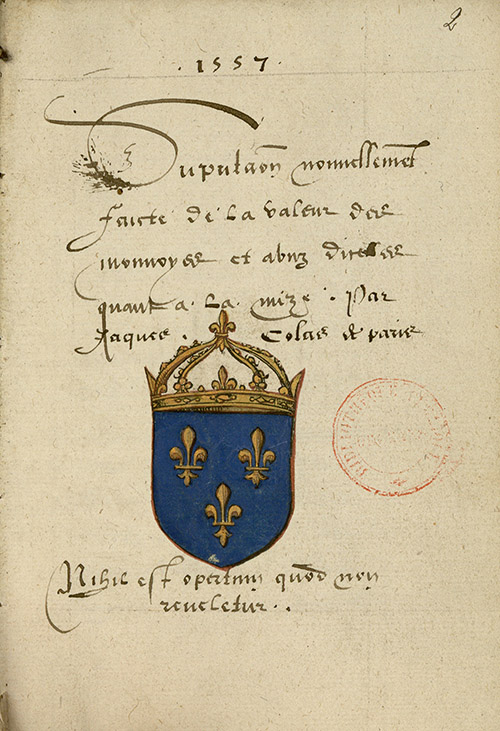 2
. 1557 .
Supputaõn nouuellement
faicte de la valeur des
monnoyes et abuz dicelles
quant a . la mize . Par
Jaques . Colas de paris
Nihil est opertum quod non
reueletur . .